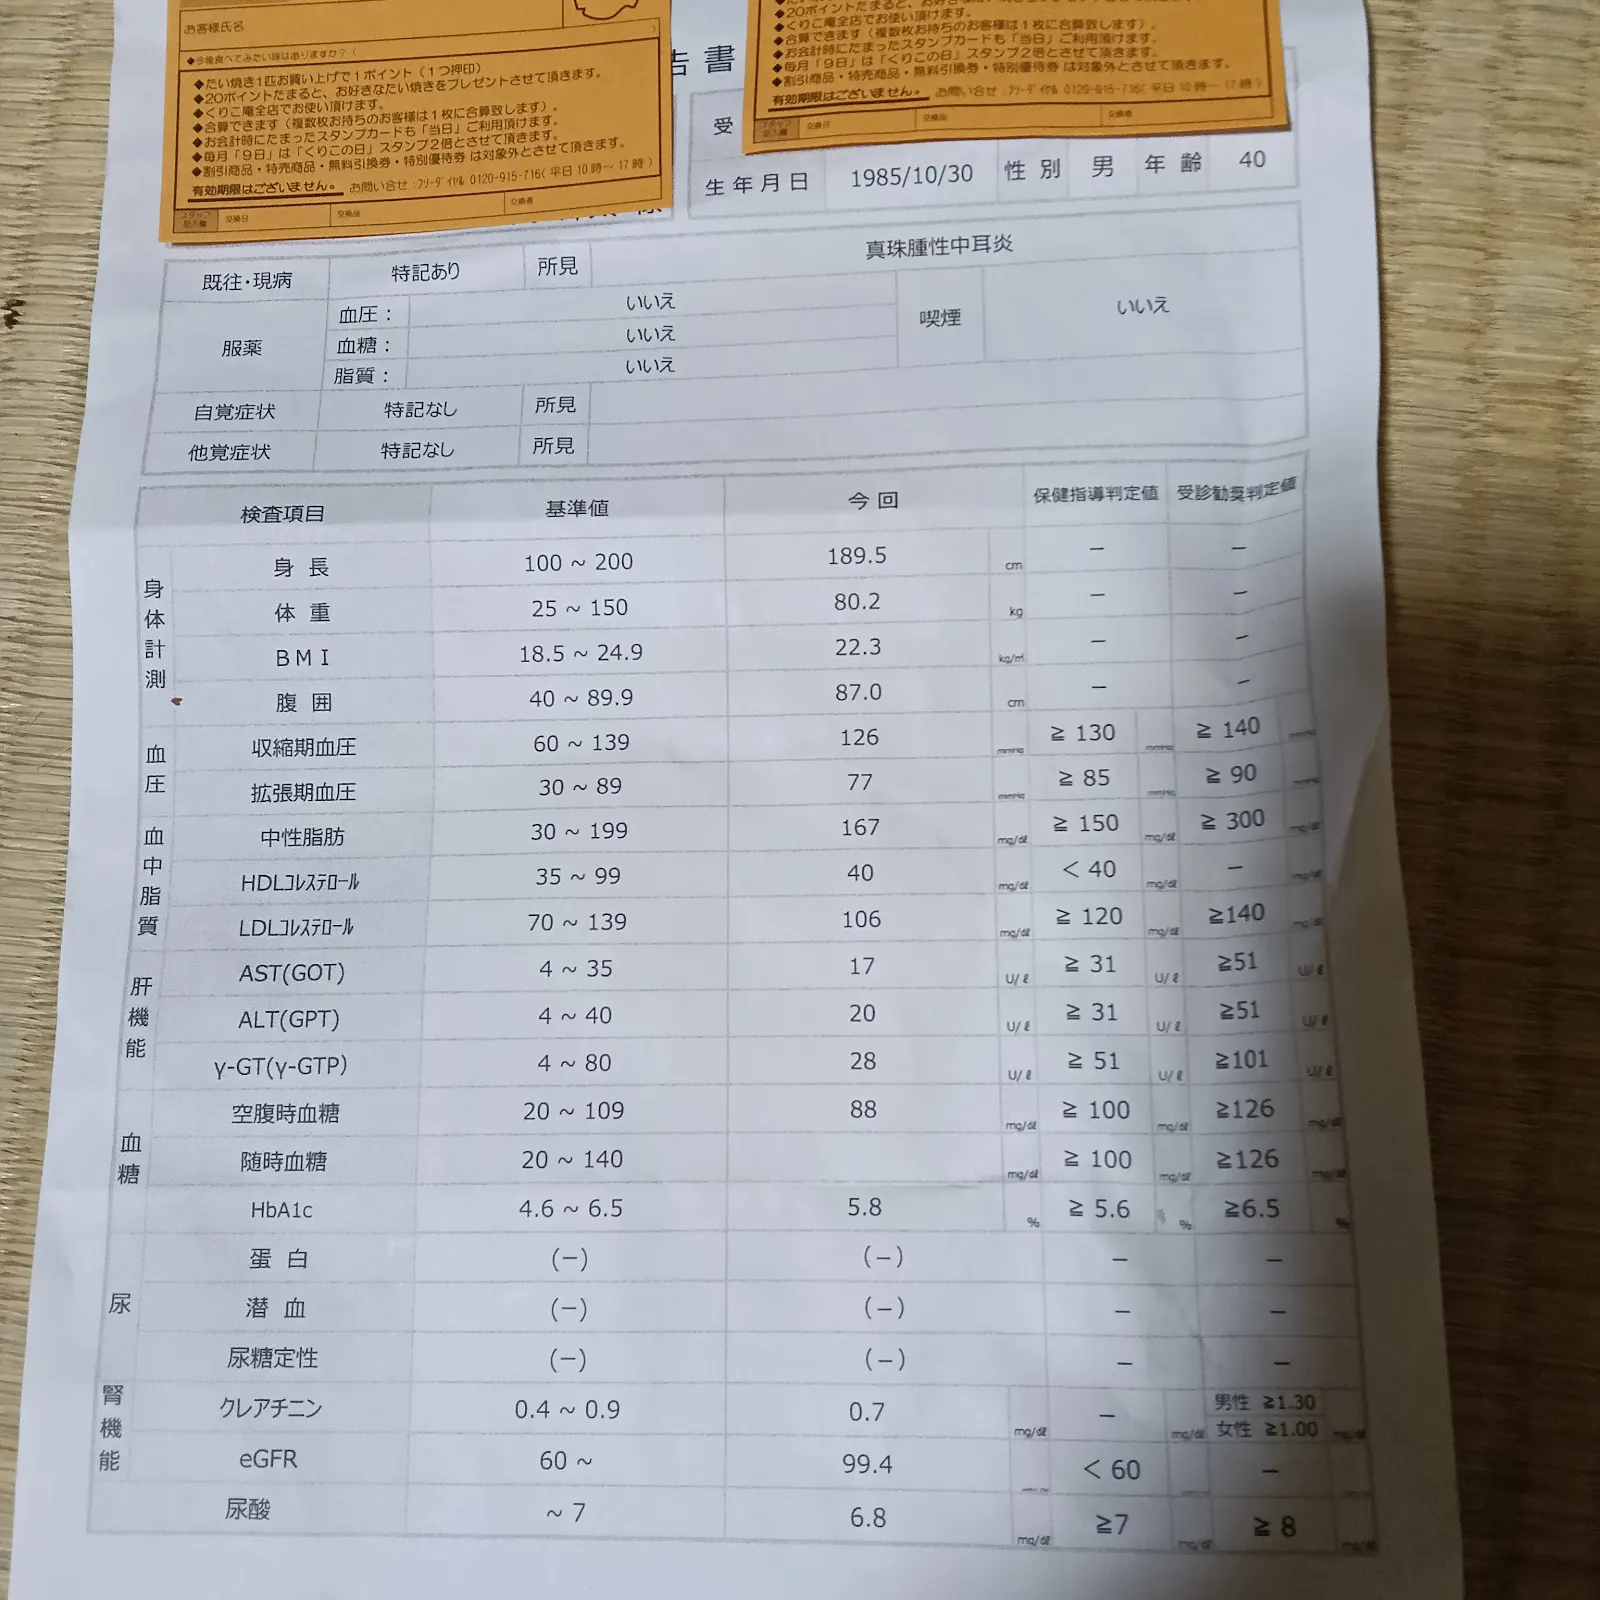 お客様氏名
◆今後食べてみたい味はありますか?(
)
◆たい焼き1匹お買い上げで1ポイント(1つ押印)
◆20ポイントたまると、お好きなたい焼きをプレゼントさせて頂きます。
◆くりこ庵全店でお使い頂けます。
◆合算できます(複数枚お持ちのお客様は1枚に合算致します)。
◆お会計時にたまったスタンプカードも「当日」ご利用頂けます。
◆毎月「9日」は「くりこの日」スタンプ2倍とさせて頂きます。
◆割引商品・特売商品・無料引換券・特別優待券 は対象外とさせて頂きます。
有効期限はございません。 お問い合せ:フリーダイヤル 0120-915-716(平日10時~17時)
スタッフ記入欄 交換日 交換品 交換者
告書
◆20ポイントたまると、お好きなたい焼きを
◆くりこ庵全店でお使い頂けます。
◆合算できます(複数枚お持ちのお客様は1枚に合算致します)。
◆お会計時にたまったスタンプカードも「当日」ご利用頂けます。
◆毎月「9日」は「くりこの日」スタンプ2倍とさせて頂きます。
◆割引商品・特売商品・無料引換券・特別優待券 は対象外とさせて頂きます。
有効期限はございません。 お問い合せ:フリーダイヤル 0120-915-716(平日10時~17時)
スタッフ記入欄 交換日 交換品 交換者
受
様
生年月日 1985/10/30 性別 男 年齢 40
既往・現病 特記あり 所見 真珠腫性中耳炎
服薬 血圧: いいえ 喫煙 いいえ
血糖: いいえ
脂質: いいえ
自覚症状 特記なし 所見
他覚症状 特記なし 所見
検査項目 基準値 今回 保健指導判定値 受診勧奨判定値
身体計測 身長 100 ~ 200 189.5 cm − −
体重 25 ~ 150 80.2 kg − −
BMI 18.5 ~ 24.9 22.3 kg/㎡ − −
腹囲 40 ~ 89.9 87.0 cm − −
血圧 収縮期血圧 60 ~ 139 126 mmHg ≧ 130 mmHg ≧ 140 mmHg
拡張期血圧 30 ~ 89 77 mmHg ≧ 85 mmHg ≧ 90 mmHg
血中脂質 中性脂肪 30 ~ 199 167 mg/dℓ ≧ 150 mg/dℓ ≧ 300 mg/dℓ
HDLコレステロール 35 ~ 99 40 mg/dℓ < 40 mg/dℓ − mg/dℓ
LDLコレステロール 70 ~ 139 106 mg/dℓ ≧ 120 mg/dℓ ≧140 mg/dℓ
肝機能 AST(GOT) 4 ~ 35 17 U/ℓ ≧ 31 U/ℓ ≧51 U/ℓ
ALT(GPT) 4 ~ 40 20 U/ℓ ≧ 31 U/ℓ ≧51 U/ℓ
γ-GT(γ-GTP) 4 ~ 80 28 U/ℓ ≧ 51 U/ℓ ≧101 U/ℓ
血糖 空腹時血糖 20 ~ 109 88 mg/dℓ ≧ 100 mg/dℓ ≧126 mg/dℓ
随時血糖 20 ~ 140 mg/dℓ ≧ 100 mg/dℓ ≧126 mg/dℓ
HbA1c 4.6 ~ 6.5 5.8 % ≧ 5.6 % ≧6.5 %
尿 蛋白 (−) (−) − −
潜血 (−) (−) − −
尿糖定性 (−) (−) − −
腎機能 クレアチニン 0.4 ~ 0.9 0.7 mg/dℓ − mg/dℓ 男性 ≧1.30 mg/dℓ
女性 ≧1.00
eGFR 60 ~ 99.4 < 60 −
尿酸 ~ 7 6.8 mg/dℓ ≧7 mg/dℓ ≧ 8 mg/dℓ